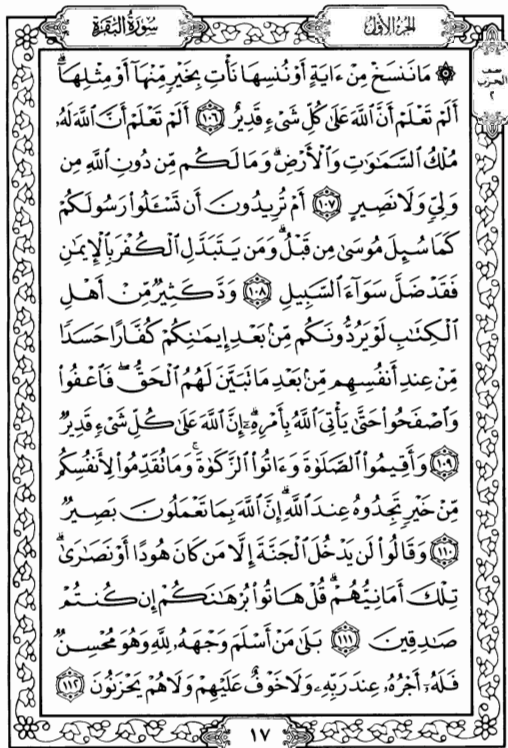 سُورَةُ البَقَرَةِ
الجُزْءُ الأَوَّلُ
نصف
الحزب
٢
۞ مَا نَنسَخْ مِنْ ءَايَةٍ أَوْ نُنسِهَا نَأْتِ بِخَيْرٍ مِّنْهَآ أَوْ مِثْلِهَآۗ
أَلَمْ تَعْلَمْ أَنَّ ٱللَّهَ عَلَىٰ كُلِّ شَىْءٍ قَدِيرٌ ١٠٦ أَلَمْ تَعْلَمْ أَنَّ ٱللَّهَ لَهُۥ
مُلْكُ ٱلسَّمَٰوَٰتِ وَٱلْأَرْضِۗ وَمَا لَكُم مِّن دُونِ ٱللَّهِ مِن
وَلِىٍّ وَلَا نَصِيرٍ ١٠٧ أَمْ تُرِيدُونَ أَن تَسْـَٔلُوا۟ رَسُولَكُمْ
كَمَا سُئِلَ مُوسَىٰ مِن قَبْلُۗ وَمَن يَتَبَدَّلِ ٱلْكُفْرَ بِٱلْإِيمَٰنِ
فَقَدْ ضَلَّ سَوَآءَ ٱلسَّبِيلِ ١٠٨ وَدَّ كَثِيرٌ مِّنْ أَهْلِ
ٱلْكِتَٰبِ لَوْ يَرُدُّونَكُم مِّنۢ بَعْدِ إِيمَٰنِكُمْ كُفَّارًا حَسَدًا
مِّنْ عِندِ أَنفُسِهِم مِّنۢ بَعْدِ مَا تَبَيَّنَ لَهُمُ ٱلْحَقُّۖ فَٱعْفُوا۟
وَٱصْفَحُوا۟ حَتَّىٰ يَأْتِىَ ٱللَّهُ بِأَمْرِهِۦٓۗ إِنَّ ٱللَّهَ عَلَىٰ كُلِّ شَىْءٍ قَدِيرٌ
١٠٩ وَأَقِيمُوا۟ ٱلصَّلَوٰةَ وَءَاتُوا۟ ٱلزَّكَوٰةَۚ وَمَا تُقَدِّمُوا۟ لِأَنفُسِكُم
مِّنْ خَيْرٍ تَجِدُوهُ عِندَ ٱللَّهِۗ إِنَّ ٱللَّهَ بِمَا تَعْمَلُونَ بَصِيرٌ
١١٠ وَقَالُوا۟ لَن يَدْخُلَ ٱلْجَنَّةَ إِلَّا مَن كَانَ هُودًا أَوْ نَصَٰرَىٰۗ
تِلْكَ أَمَانِيُّهُمْۗ قُلْ هَاتُوا۟ بُرْهَٰنَكُمْ إِن كُنتُمْ
صَٰدِقِينَ ١١١ بَلَىٰ مَنْ أَسْلَمَ وَجْهَهُۥ لِلَّهِ وَهُوَ مُحْسِنٌ
فَلَهُۥٓ أَجْرُهُۥ عِندَ رَبِّهِۦ وَلَا خَوْفٌ عَلَيْهِمْ وَلَا هُمْ يَحْزَنُونَ ١١٢
١٧